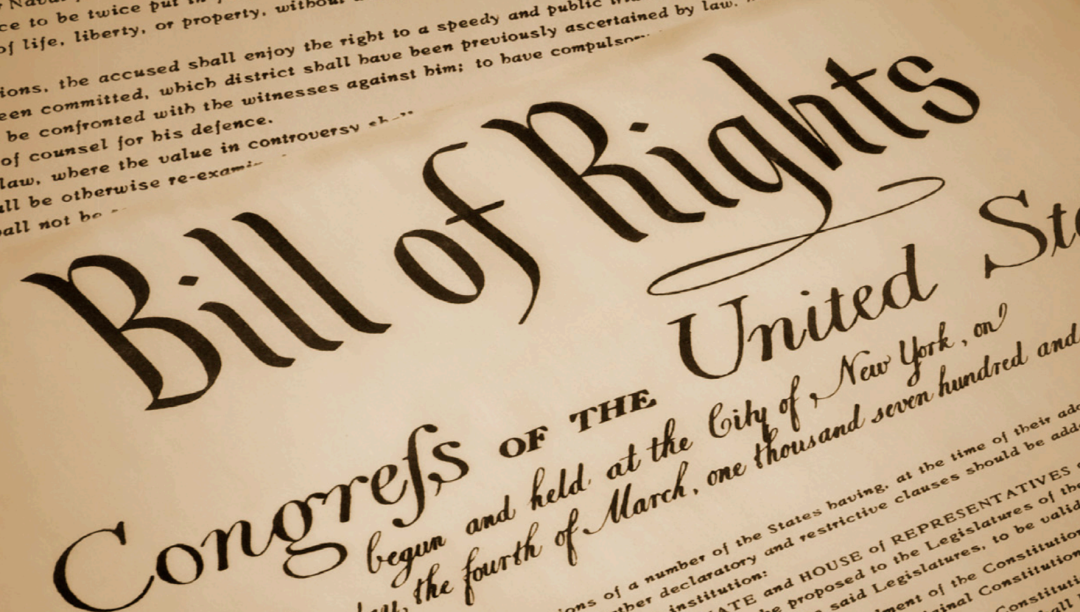 ce to be twice put in
of life, liberty, or property, without
ions, the accused shall enjoy the right to a speedy and public
een committed, which district shall have been previously ascertained by law,
be confronted with the witnesses against him; to have compulsory
of counsel for his defence.
law, where the value in controversy shall
all be otherwise re-exam
hall not be
Bill of Rights
Congreſs OF THE United Sta
begun and held at the City of New York, on
the fourth of March, one thousand seven hundred and
ons of a number of the States having, at the time of their ado
ther declaratory and restrictive clauses should be add
institution:
ATE and HOUSE of REPRESENTATIVES
be proposed to the Legislatures of the
said Legislatures, to be valid
ment of the Constitution
inal Constitution